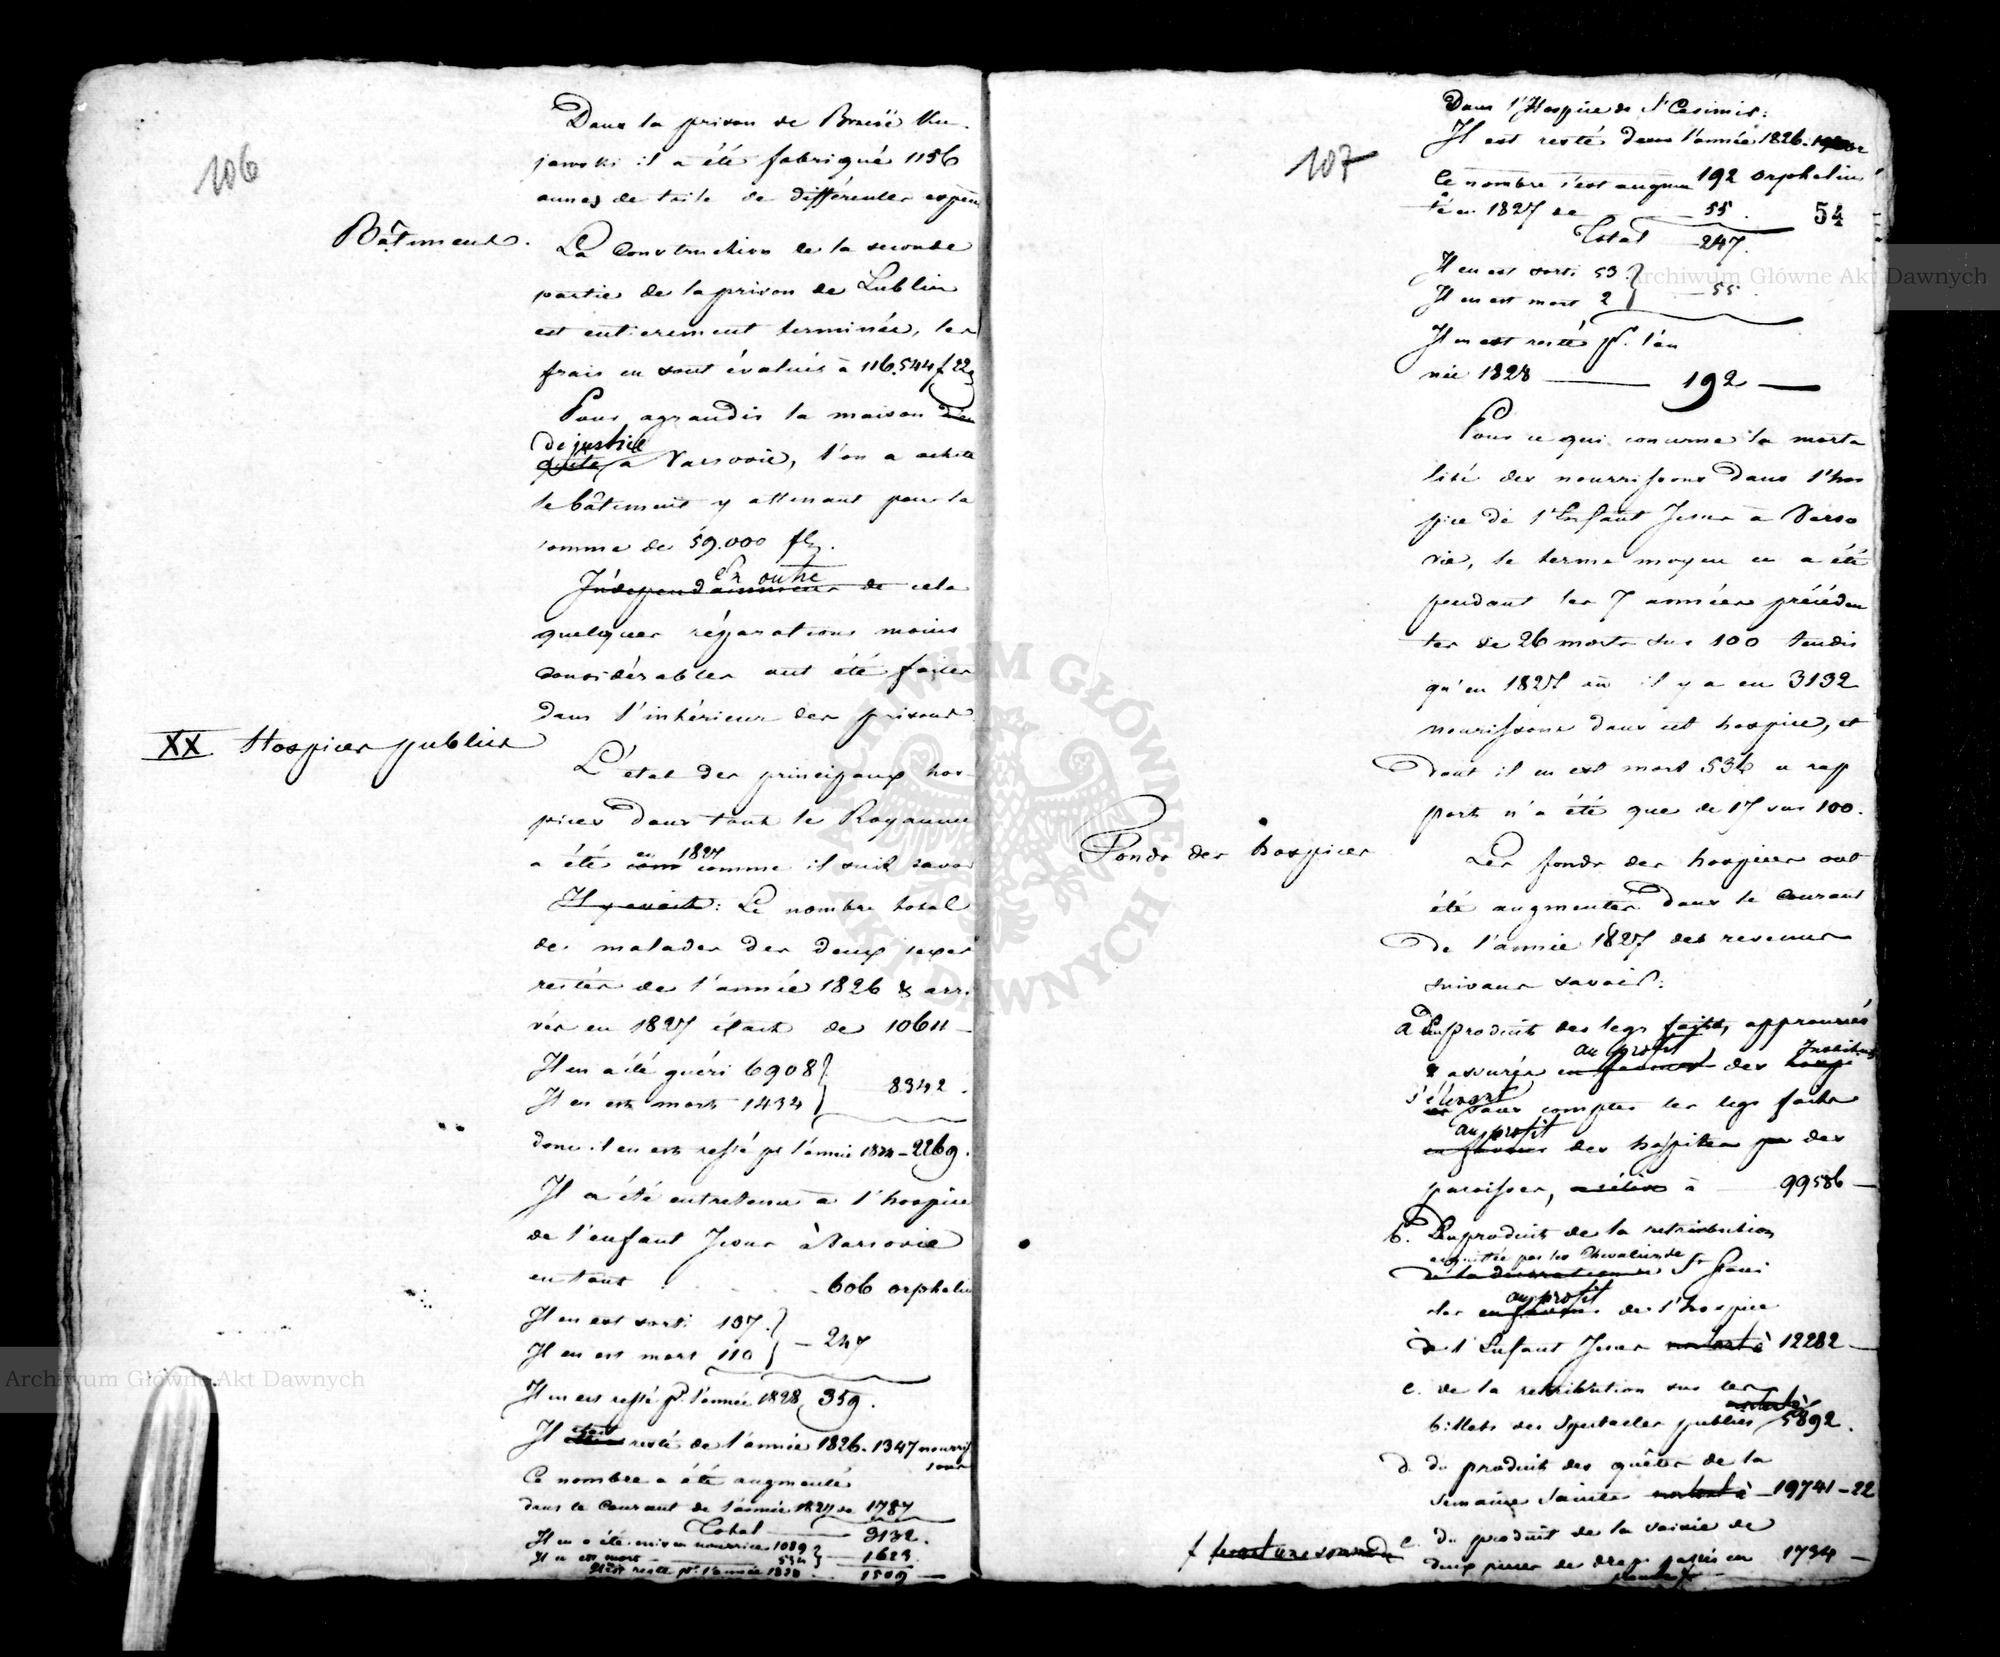 106
Dans la prison de Brześć Ku-
jawski il a été fabriqué 1156
aunes de toile de différentes espèces
Bâtiments.
La Construction de la seconde
partie de la prison de Lublin
est entierement terminée, les
frais en sont évalués à 116.544 f 22 g
Pour agrandir la maison
de justice
à Varsovie, l'on a acheté
le bâtiment y attenant pour la
somme de 59.000 fl.
En outre
Indépendamment de cela
quelques réparations moins
considérables ont été faites
dans l'intérieur des prisons
XX. Hospices publics
L'état des principaux hos-
pices dans tout le Royaume
en 1827
a été comme il suit savoir
Il y avait : Le nombre total
des malades des deux sexes
restés de l'année 1826 & arri
vés en 1827 était de 10611 -
Il en a été guéri 6908
Il en est mort 1434 } 8342 .
donc il en est resté pr l'année 1828 - 2269.
Il a été entretenu à l'hospice
de l'enfant Jesus à Varsovie
en tout - 606 orphelins
Il en est sorti 137
Il en est mort 110 } - 247
Il en est resté pr. l'année 1828, 359.
Il était resté de l'année 1826. 1347 nourris
sons
Ce nombre a été augmenté
dans le Courant de l'année 1827 de 1787
Total 3132.
Il en a été mis en nourrice 1089
Il en est mort 534 } 1623
Il est resté pr. l'année 1828 1509
107
Dans l'Hospice de St Casimir:
Il est resté dans l'année 1826.
192 orphelins
Ce nombre s'est augmen
té en 1827 de 55.
54
Total 247.
Il en est sorti 53
Il en est mort 2 } 55
Il en est resté pr. l'an
née 1828 192
Pour ce qui concerne la morta
lité des nourrissons dans l'hos
pice de l'Enfant Jesus à Varso
vie, le terme moyen en a été
pendant les 7 années précéden
tes de 26 morts sur 100 tandis
qu'en 1827 où il y a eu 3132
nourissons dans cet hospice, et
dont il en est mort 534 ce rap
port n'a été que de 17 sur 100.
Fonds des hospices
Les fonds des hospices ont
été augmentés dans le Courant
de l'année 1827 des revenus
suivans savoir:
a. Du produit des legs faits, approuvés
au profit Institut
& assurés en faveur des hosp
s'élevant
sans compter les legs faits
au profit
en faveur des hôpitaux par des
paroisses, à 99586 -
b. Du produit de la retribution
acquittée par les Chevaliers de
de la décoration de St Stanis
au profit
las en faveur de l'hospice
de l'Enfant Jesus montant à 12282 -
c. de la retribution sur les
montant à
billets des Spectacles publics 5892.
d. du produit des quêtes de la
Semaine Sainte montant à 19741 - 22
e. du produit de la saisie de
deux pieces de drap 1734 -
Archiwum Główne Akt Dawnych
Archiwum Główne Akt Dawnych
ARCHIWUM GŁÓWNE AKT DAWNYCH